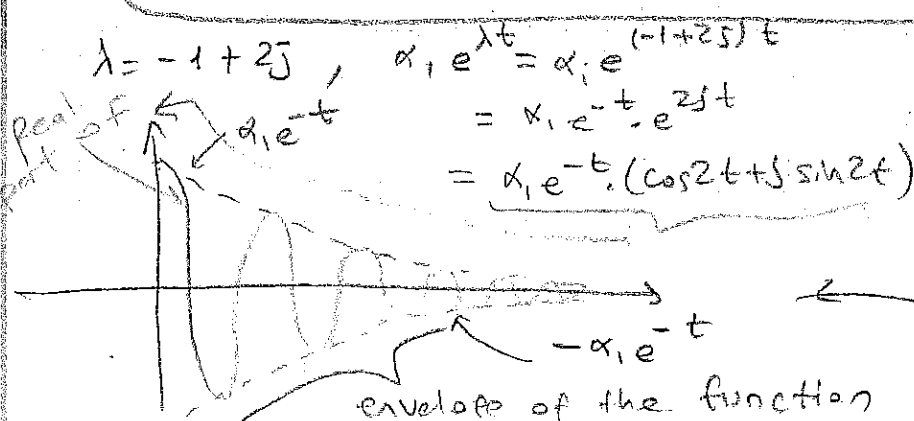 λ = -1 + 2j , α₁ e^{λt} = α₁ e^{(-1+2j)t}
= α₁ e^{-t} . e^{2jt}
= α₁ e^{-t} . (cos2t + j sin2t)
real part of
α₁ e^{-t}
-α₁ e^{-t}
envelope of the function